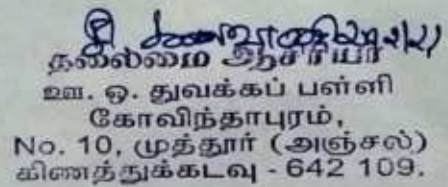 தலைமை ஆசிரியர்
ஊ. ஒ. துவக்கப் பள்ளி
கோவிந்தாபுரம்,
No. 10, முத்தூர் (அஞ்சல்)
கிணத்துக்கடவு - 642 109.